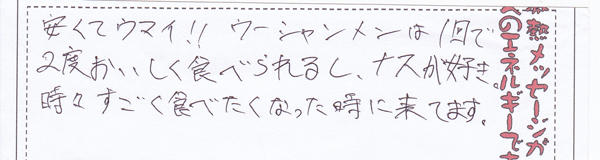 安くてウマイ!! ウーシャンメンは1回で
2度おいしく食べられるし、ナスが好き。
時々すごく食べたくなった時に来てます。
熱メッセージが
のエネルギーです